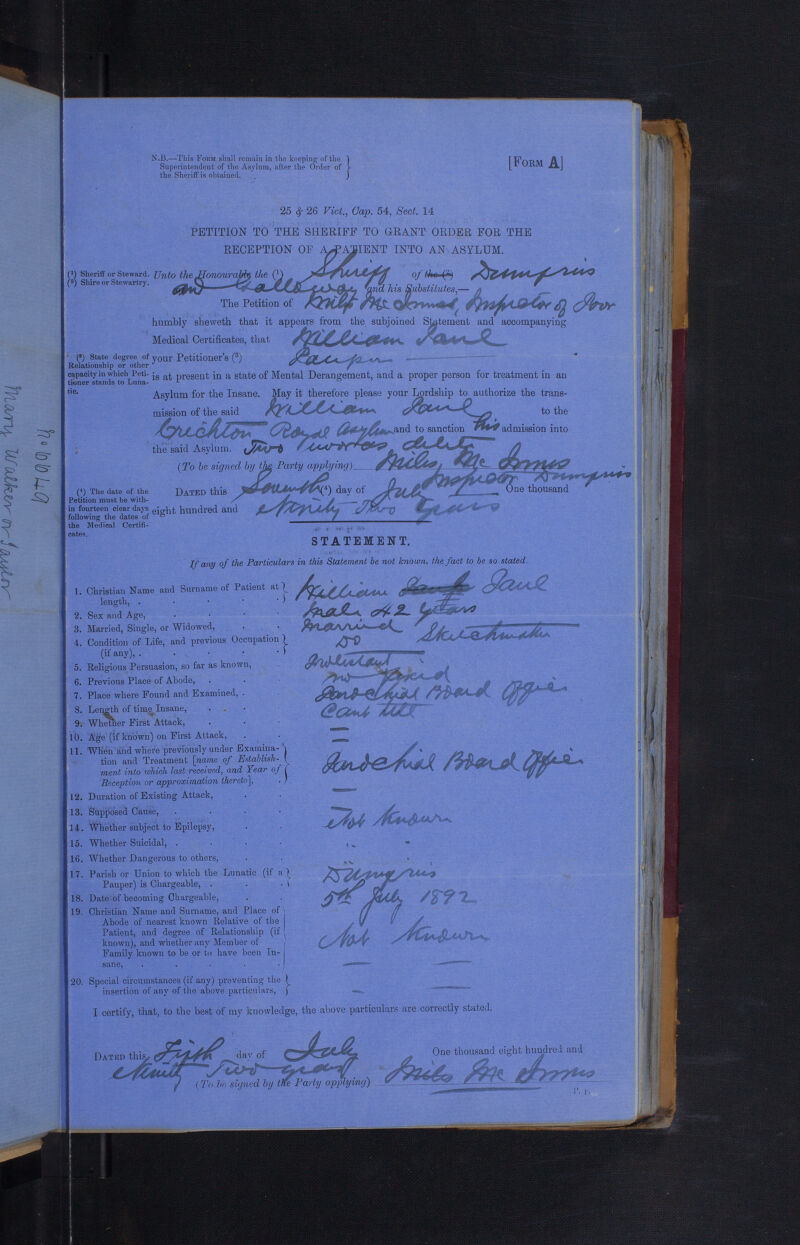 N.B.—This Form shall remain in the keeping of the
Superintendent of the Asylum, after the Order of
the Sheriff is obtained.
[Form A]
25 & 26 Vict., Cap. 54, Sect. 14
PETITION TO THE SHERIFF TO GRANT ORDER FOR THE
RECEPTION OF A PATIENT INTO AN ASYLUM.
(1) Sheriff or Steward.
(2) Shire or Stewartry.
Unto the Honourable the (1) Sheriff of the (2) Dumfries
and Galloway and his Substitutes,—
The Petition of Miles McInnes, Inspector of Poor
humbly sheweth that it appears from the subjoined Statement and accompanying
Medical Certificates, that William Saul
(3) State degree of
Relationship or other
capacity in which Peti-
tioner stands to Luna-
tic.
your Petitioner's (3) Pauper
is at present in a state of Mental Derangement, and a proper person for treatment in an
Asylum for the Insane. May it therefore please your Lordship to authorize the trans-
mission of the said William Saul to the
Crichton Royal Asylum and to sanction his admission into
the said Asylum. Two words delete
(To be signed by the Party applying) Miles McInnes
Inspector Dumfries
(4) The date of the
Petition must be with-
in fourteen clear days
following the dates of
the Medical Certifi-
cates.
Dated this Seventh (4) day of July One thousand
eight hundred and Ninety Two years
STATEMENT.
If any of the Particulars in this Statement be not known, the fact to be so stated.
1. Christian Name and Surname of Patient at
length, . William Saul
2. Sex and Age, Male 42 years
3. Married, Single, or Widowed, Married
4. Condition of Life, and previous Occupation
(if any), . Do Sketchmaker
5. Religious Persuasion, so far as known, Protestant
6. Previous Place of Abode, . no fixed
7. Place where Found and Examined, . Parochial Board Office
8. Length of time Insane, Cant tell
9. Whether First Attack, —
10. Age (if known) on First Attack, —
11. When and where previously under Examina-
tion and Treatment [name of Establish-
ment into which last received, and Year of
Reception or approximation thereto], Parochial Board Office
12. Duration of Existing Attack, —
13. Supposed Cause,
14. Whether subject to Epilepsy, Not Known
15. Whether Suicidal, . " "
16. Whether Dangerous to others,
17. Parish or Union to which the Lunatic (if a
Pauper) is Chargeable, . Dumfries
18. Date of becoming Chargeable, 5th July 1892
19. Christian Name and Surname, and Place of
Abode of nearest known Relative of the
Patient, and degree of Relationship (if
known), and whether any Member of
Family known to be or to have been In-
sane, Not Known
20. Special circumstances (if any) preventing the
insertion of any of the above particulars, — —
I certify, that, to the best of my knowledge, the above particulars are correctly stated.
Dated this Fifth day of July One thousand eight hundred and
Ninety Two years
(To be signed by the Party applying) Miles McInnes
No 6049
Mary Walker or Taylor